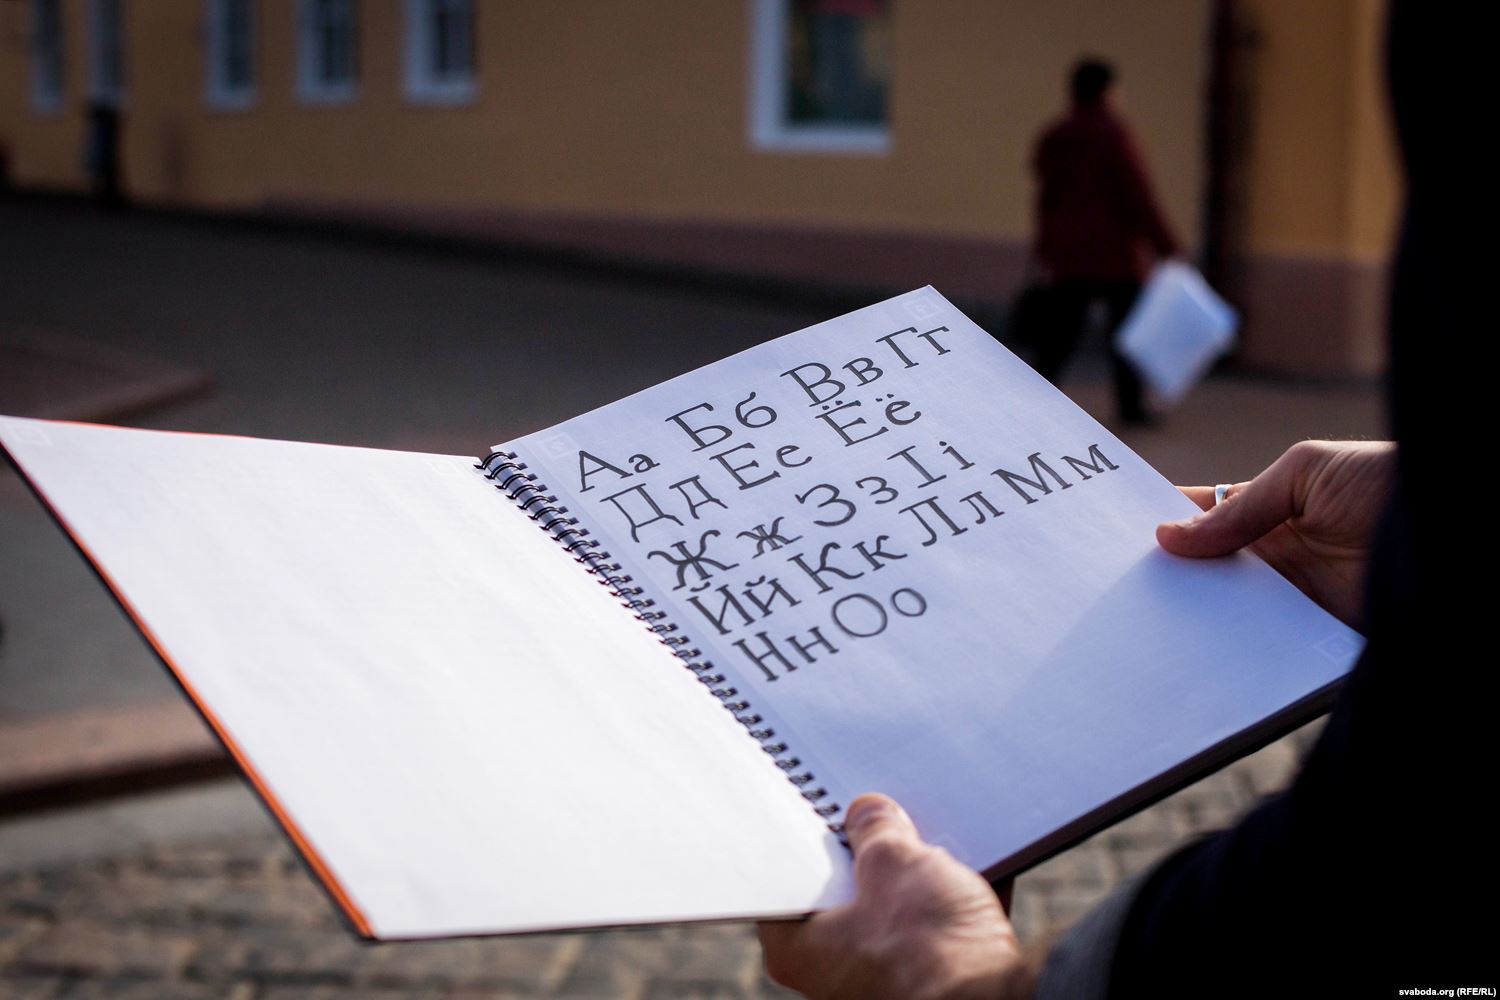 Аа Бб Вв Гг
Дд Ее Ёё
Жж Зз Іі
Йй Кк Лл Мм
Нн Оо
svaboda.org (RFE/RL)